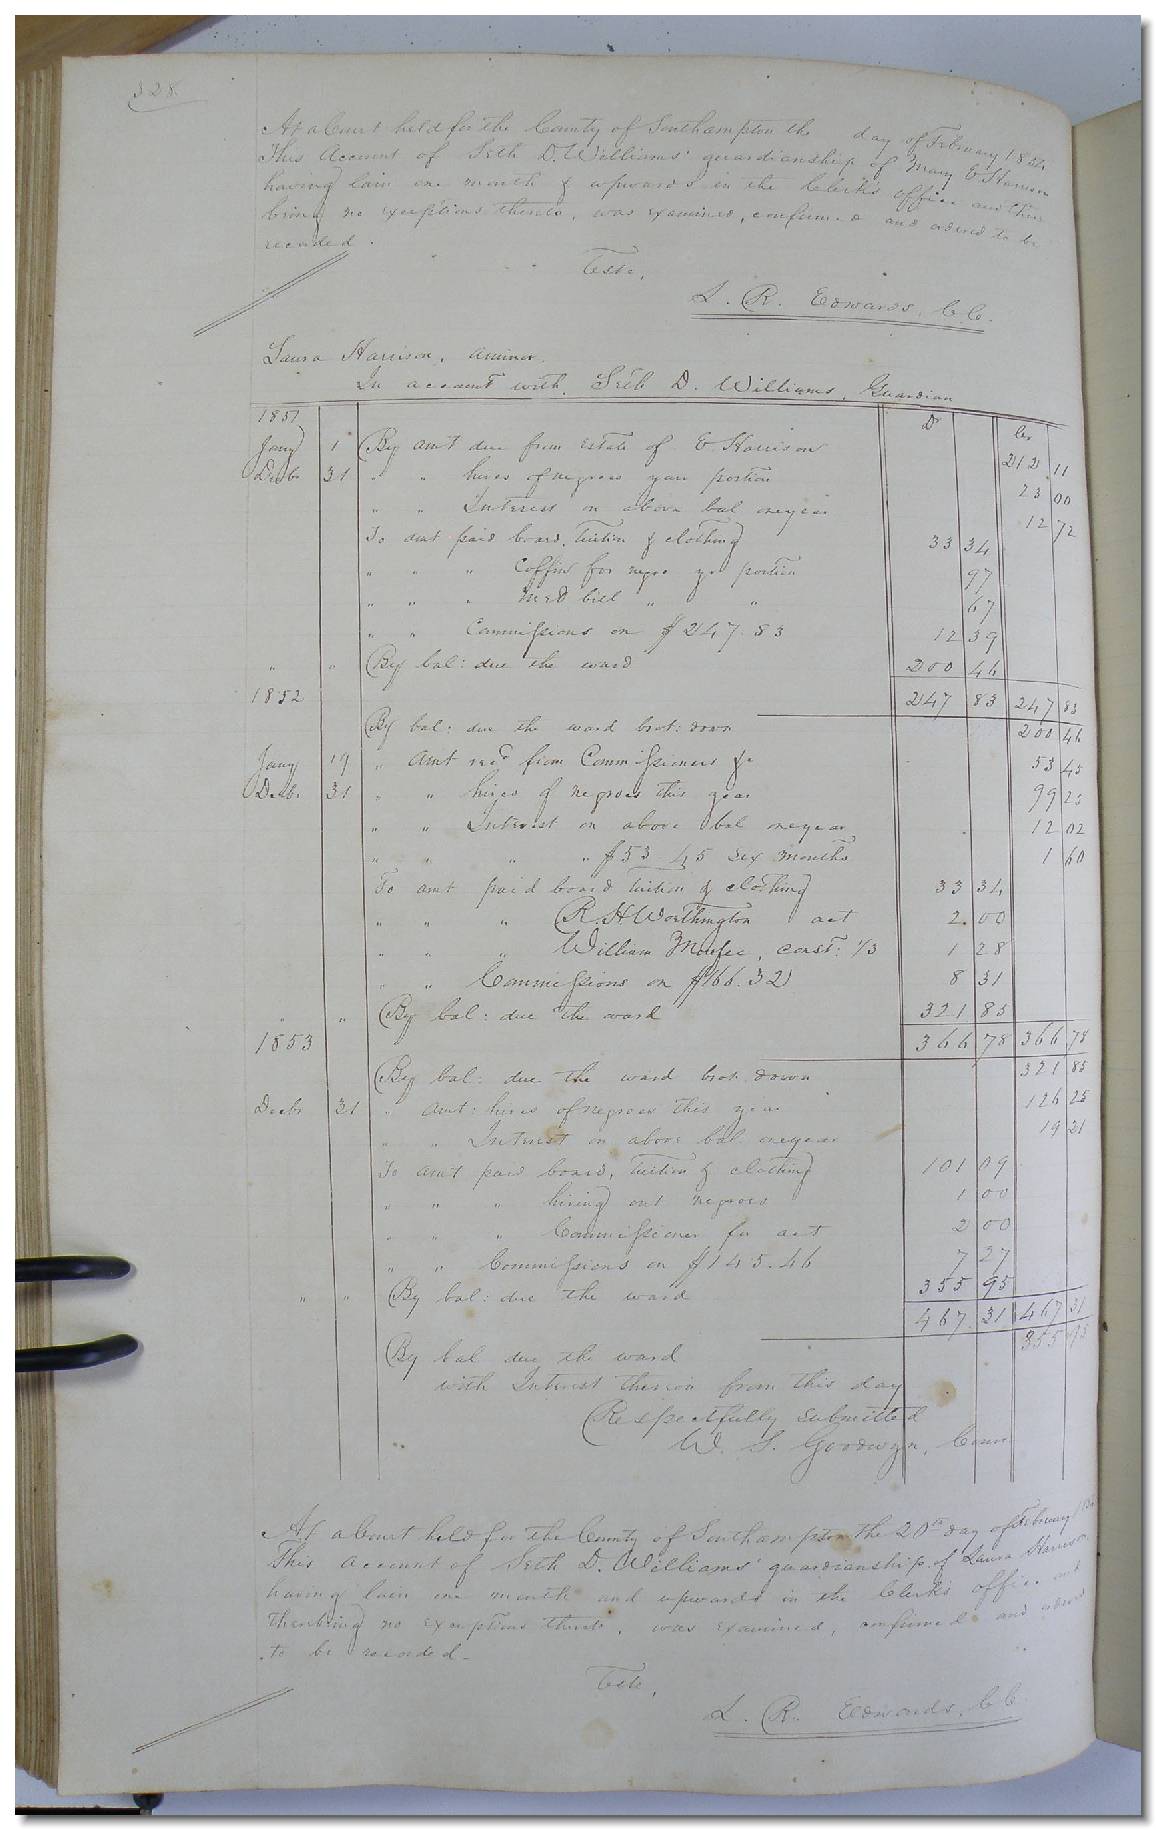 328
At a Court held for the County of Southampton the day of February 185
This Account of Seth D. Williams' guardianship of Mary E Harrison
having lain one month & upwards in the Clerk's office and there
being no exceptions thereto, was examined, confirmed and ordered to be
recorded.
Teste,
L. R. Edwards, C.C.
Laura Harrison, a minor.
In account with Seth D. Williams, Guardian
1851 Dr Cr
Jany 1 By amt due from Estate of E Harrison 212 11
Decbr 31 " " hires of negroes your portion 23 00
" " Interest on above bal one year 12 72
To amt paid board, tuition & clothing 33 34
" " " Coffin for negro yr portion 97
" " " Med bill " " 67
" " Commissions on $247.83 12 39
" " By bal: due the ward 200 46
1852 247 83 247 83
By bal: due the ward brot: down 200 46
Jany 19 " Amt recd from Commissioners &c 53 45
Decbr 31 " " hires of negroes this year 99 25
" " Interest on above bal one year 12 02
" " " " $53 45 six months 1 60
To amt paid board tuition & clothing 33 34
" " " R. H Worthington act 2.00
" " " William, const: 1/3 1 28
" " Commissions on $166.32 8 31
" " By bal: due the ward 321 85
1853 366 78 366 78
By bal: due the ward brot down 321 85
Decbr 31 " Amt: hires of negroes this year 126 25
" " Interest on above bal. one year 19 21
To amt paid board, tuition & clothing 101 09
" " " hiring out negroes 1 00
" " " Commissioner for act 2 00
" " Commissions on $145.46 7 27
" " By bal: due the ward 355 95
467.31 467 31
By bal due the ward 355 95
with Interest thereon from this day
Respectfully submitted
W. S. Goodwyn, Comr
At a Court held for the County of Southampton the 20th day of February 185
This Account of Seth D. Williams' guardianship of Laura Harrison
having lain one month and upwards in the Clerk's office and
there being no exceptions thereto, was examined, confirmed and ordered
to be recorded.
Teste,
L. R. Edwards, C.C.